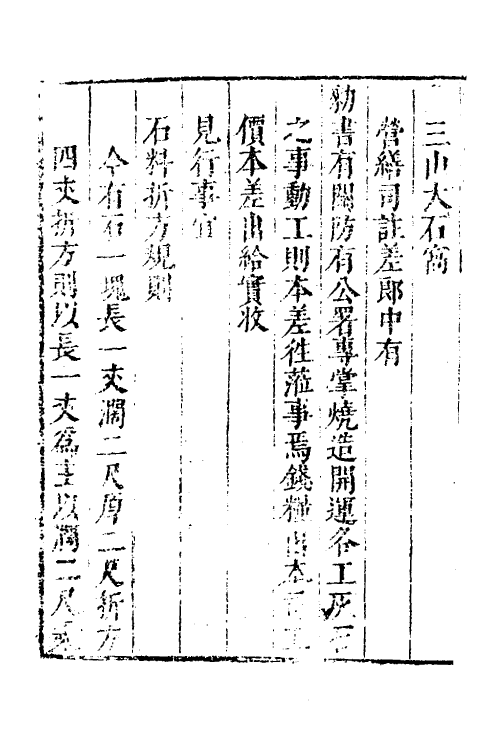 三山大石窩
營繕司註差郎中有
勑書有關防有公署專掌燒造開運各工灰石
之事動工則本差徃蒞事焉錢糧出本司工
價本差出給實收
見行事宜
石料折方規則
今有石一塊長一丈濶二尺厚二尺折方
四丈折方則以長一丈爲主以濶二尺